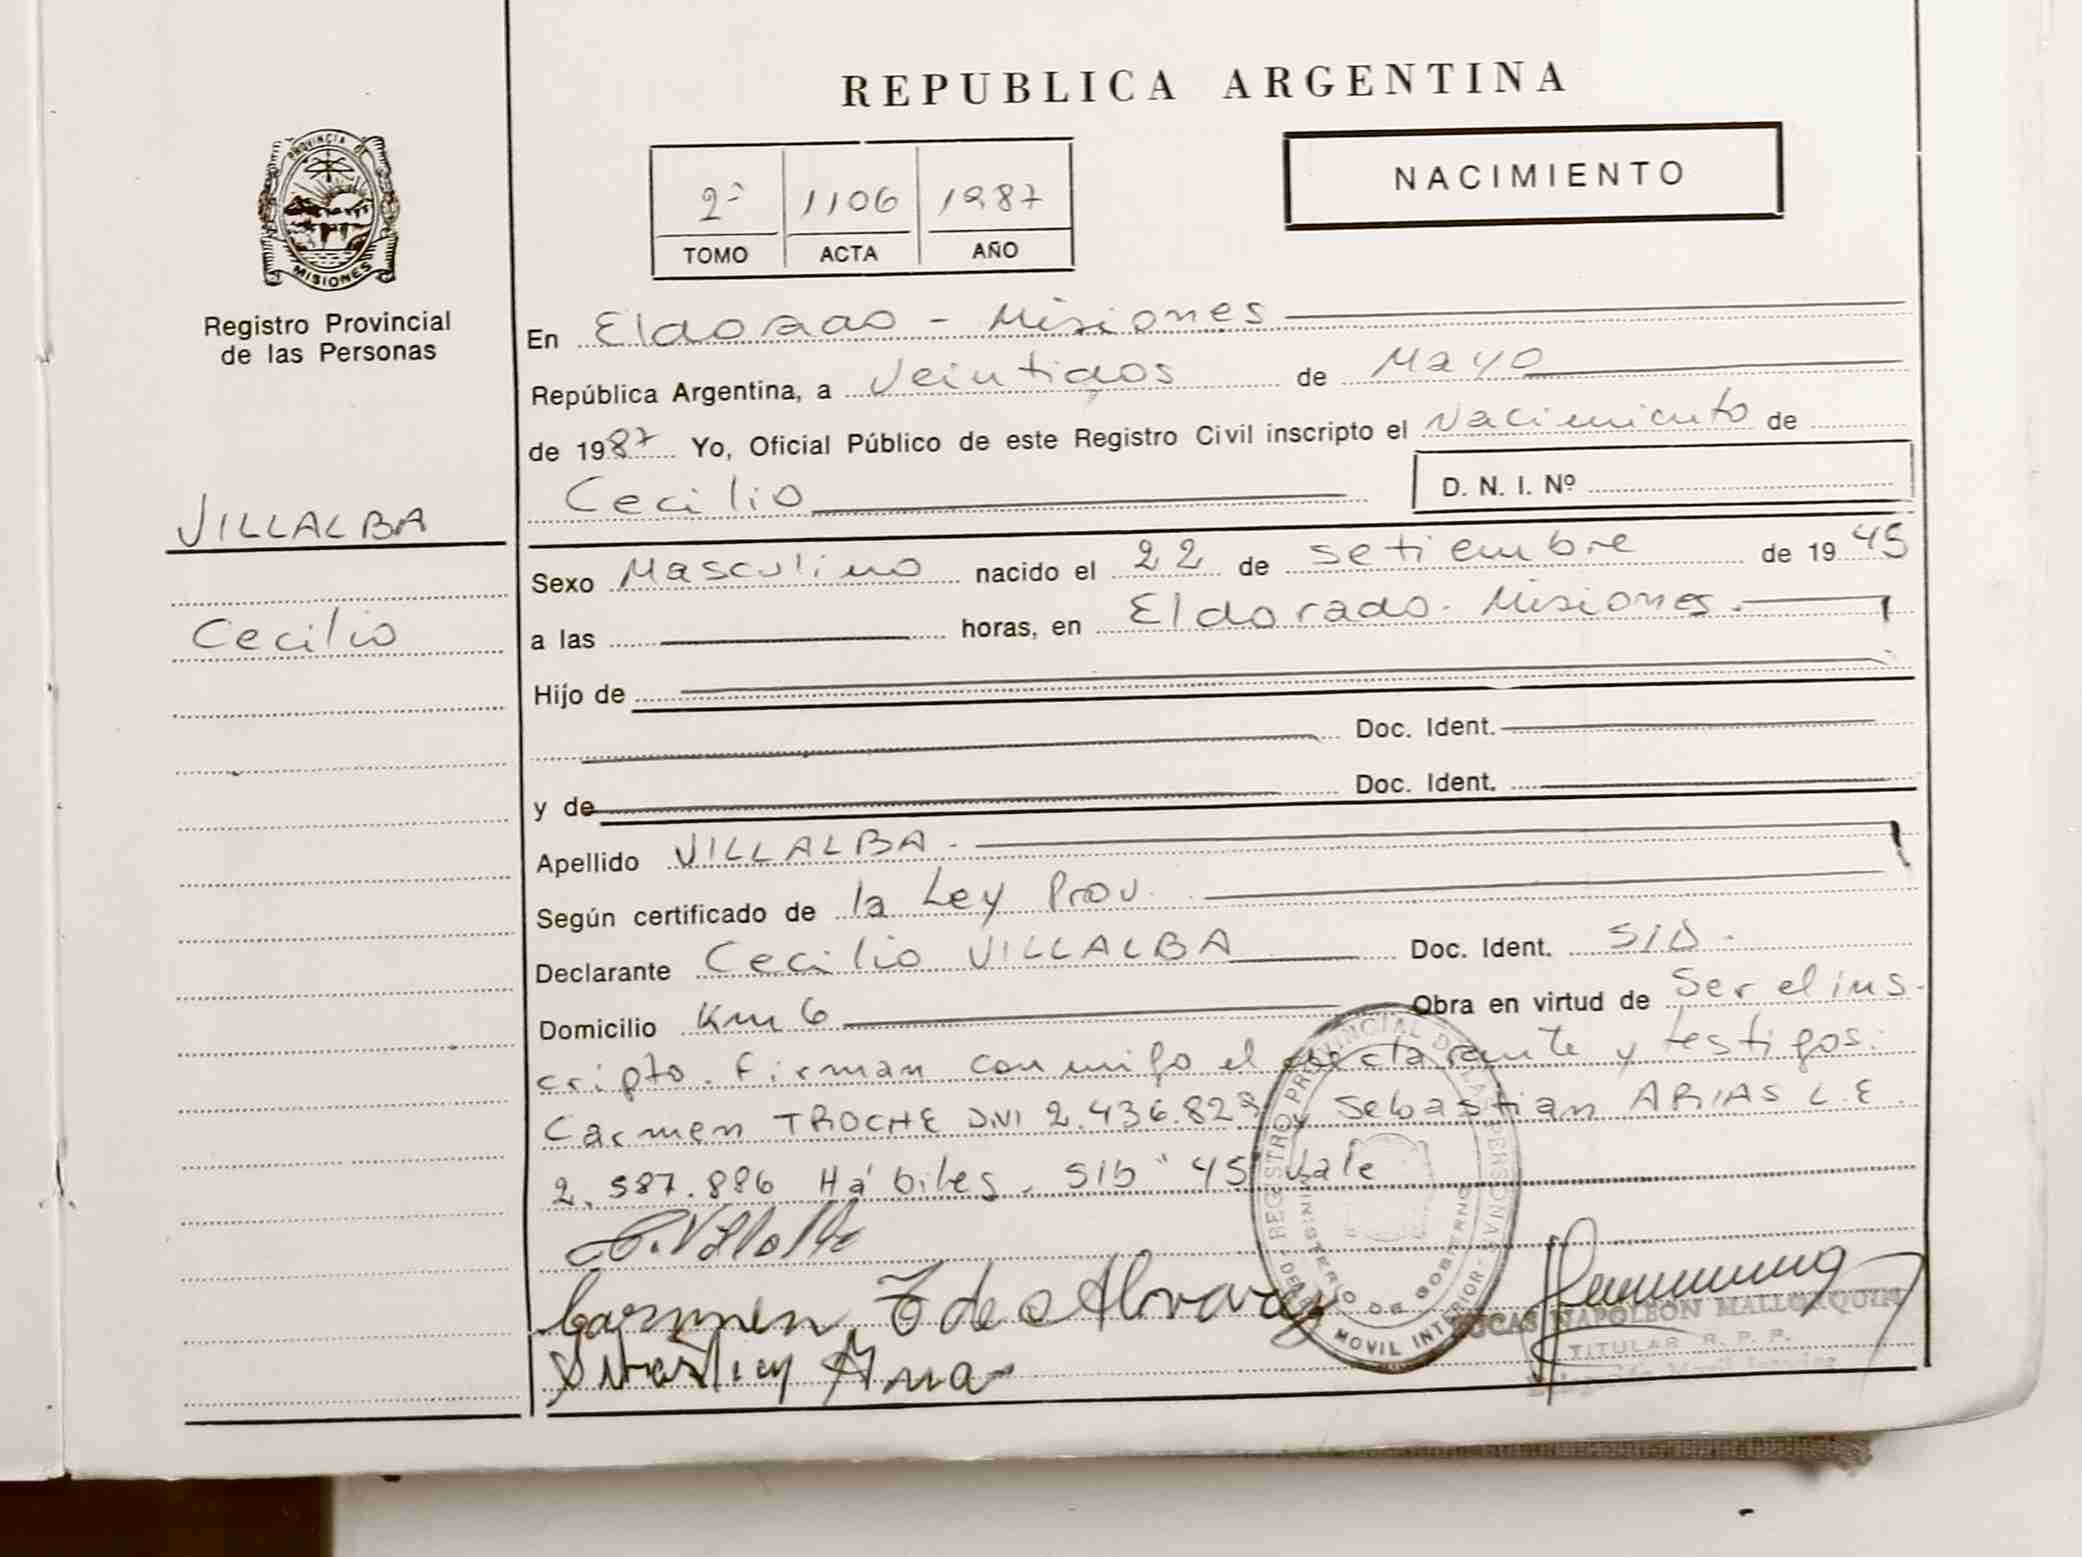 REPUBLICA ARGENTINA
PROVINCIA DE
MISIONES
Registro Provincial
de las Personas
2ª 1106 1987
TOMO ACTA AÑO
NACIMIENTO
En Eldorado - Misiones
República Argentina, a Veintidos de Mayo
de 1987 Yo, Oficial Público de este Registro Civil inscripto el Nacimiento de
Cecilio D. N. I. Nº
VILLALBA
Cecilio
Sexo Masculino nacido el 22 de setiembre de 1945
a las horas, en Eldorado - Misiones.
Hijo de
Doc. Ident.
y de Doc. Ident.
Apellido VILLALBA.
Según certificado de la Ley Prov.
Declarante Cecilio VILLALBA Doc. Ident. S/D.
Domicilio Km 6 Obra en virtud de Ser el ins-
cripto. Firman conmigo el declarante y testigos:
Carmen TROCHE DNI 2.436.829 y Sebastian ARIAS L.E.
2.587.886 Hábiles. S/b "45" Vale
C. Villalba
Carmen T de Alvarez
Sebastian Arias
REGISTRO PROVINCIAL DE LAS PERSONAS
MINISTERIO DE GOBIERNO
MOVIL INTERIOR
LUCAS NAPOLEON MALLORQUIN
TITULAR R. P. P.